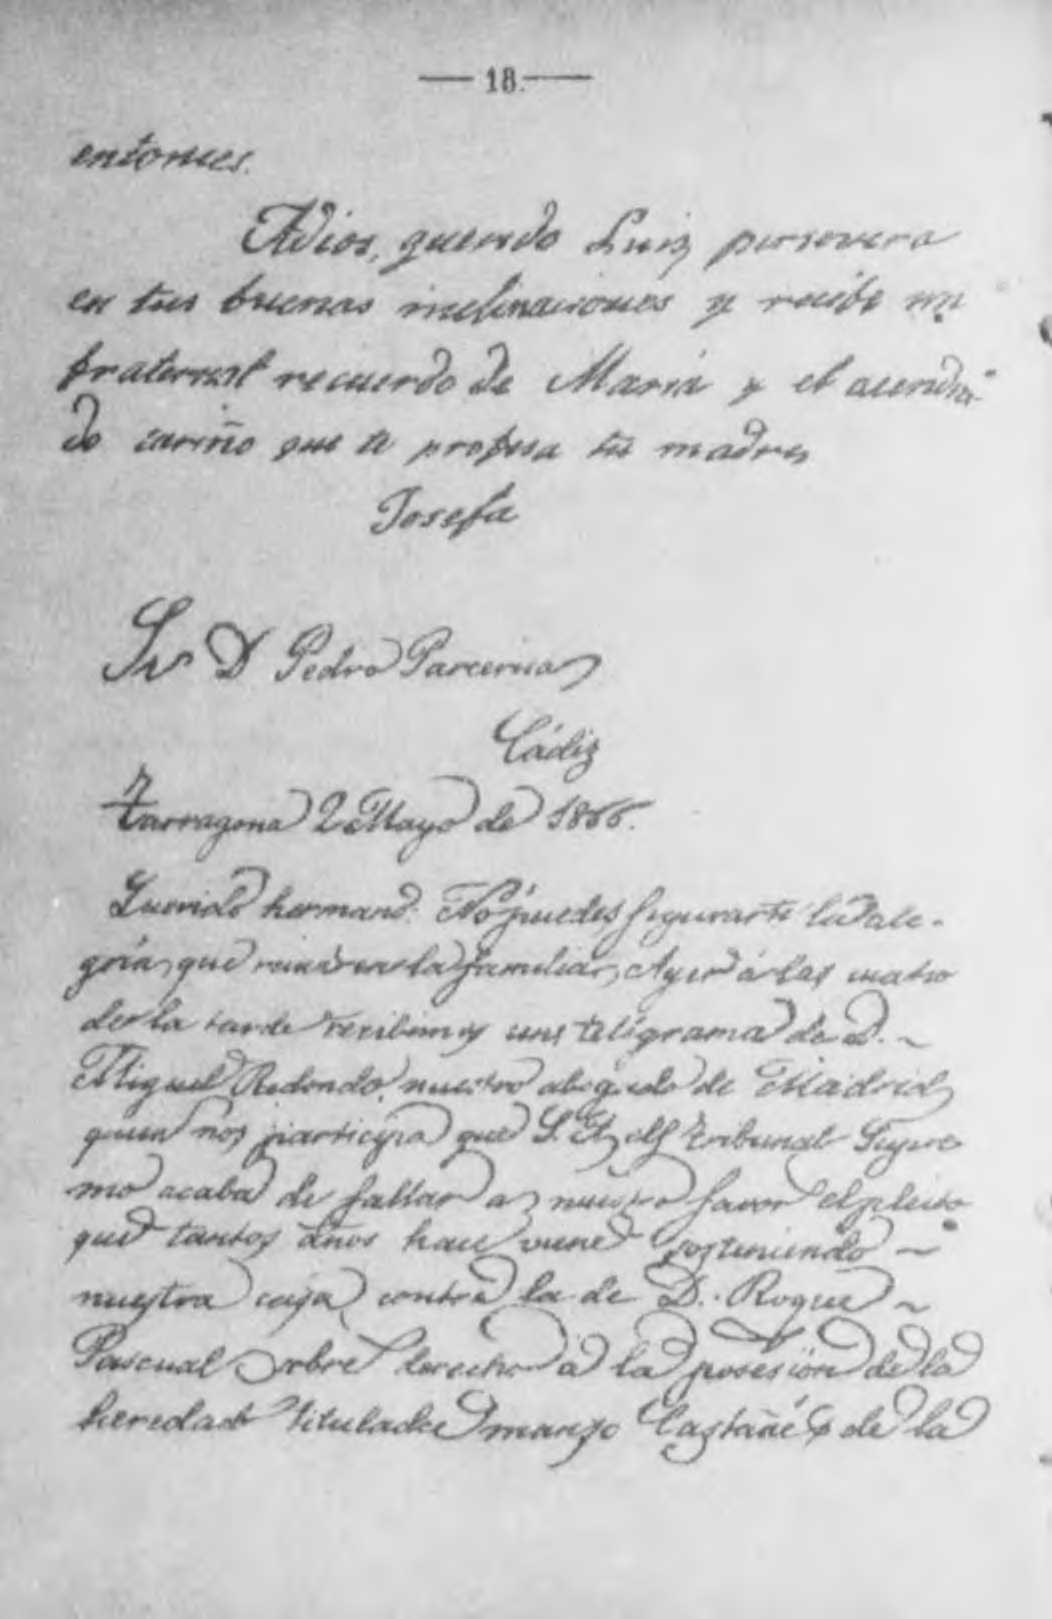 — 18. —
entonces.
Adios, querido Luis, persevera
en tus buenas inclinaciones y recibe un
fraternal recuerdo de Maria y el acendra-
do cariño que te profesa tu madre
Josefa
Sr D Pedro Parcerisa
Cádiz
Tarragona 2 Mayo de 1866.
Querido hermano: No puedes figurarte la ale-
gria que reina en la familia. Ayer á las cuatro
de la tarde recibimos un telégrama de D.
Miguel Redondo, nuestro abogado de Madrid
quien nos participa que S. A. el Tribunal Supre
mo acaba de fallar a nuestro favor el pleito
que tantos años hace viene sosteniendo
nuestra casa contra la de D. Roque
Pascual sobre derecho a la posesión de la
heredad titulada manso Castañé y de la